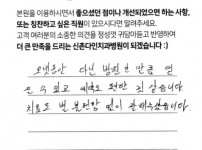 본원을 이용하시면서 좋으셨던 점이나 개선되었으면 하는 사항,
또는 칭찬하고 싶은 직원이 있으시다면 알려주세요.
고객 여러분의 소중한 의견을 정성껏 귀담아듣고 반영하여
더 큰 만족을 드리는 신촌다인치과병원이 되겠습니다 :)
오랫동안 다닌 병원인 만큼 믿
을 수 있고 예약도 편한 것 같습니다.
치료도 별 불편함 없이 잘 해주셨습니다